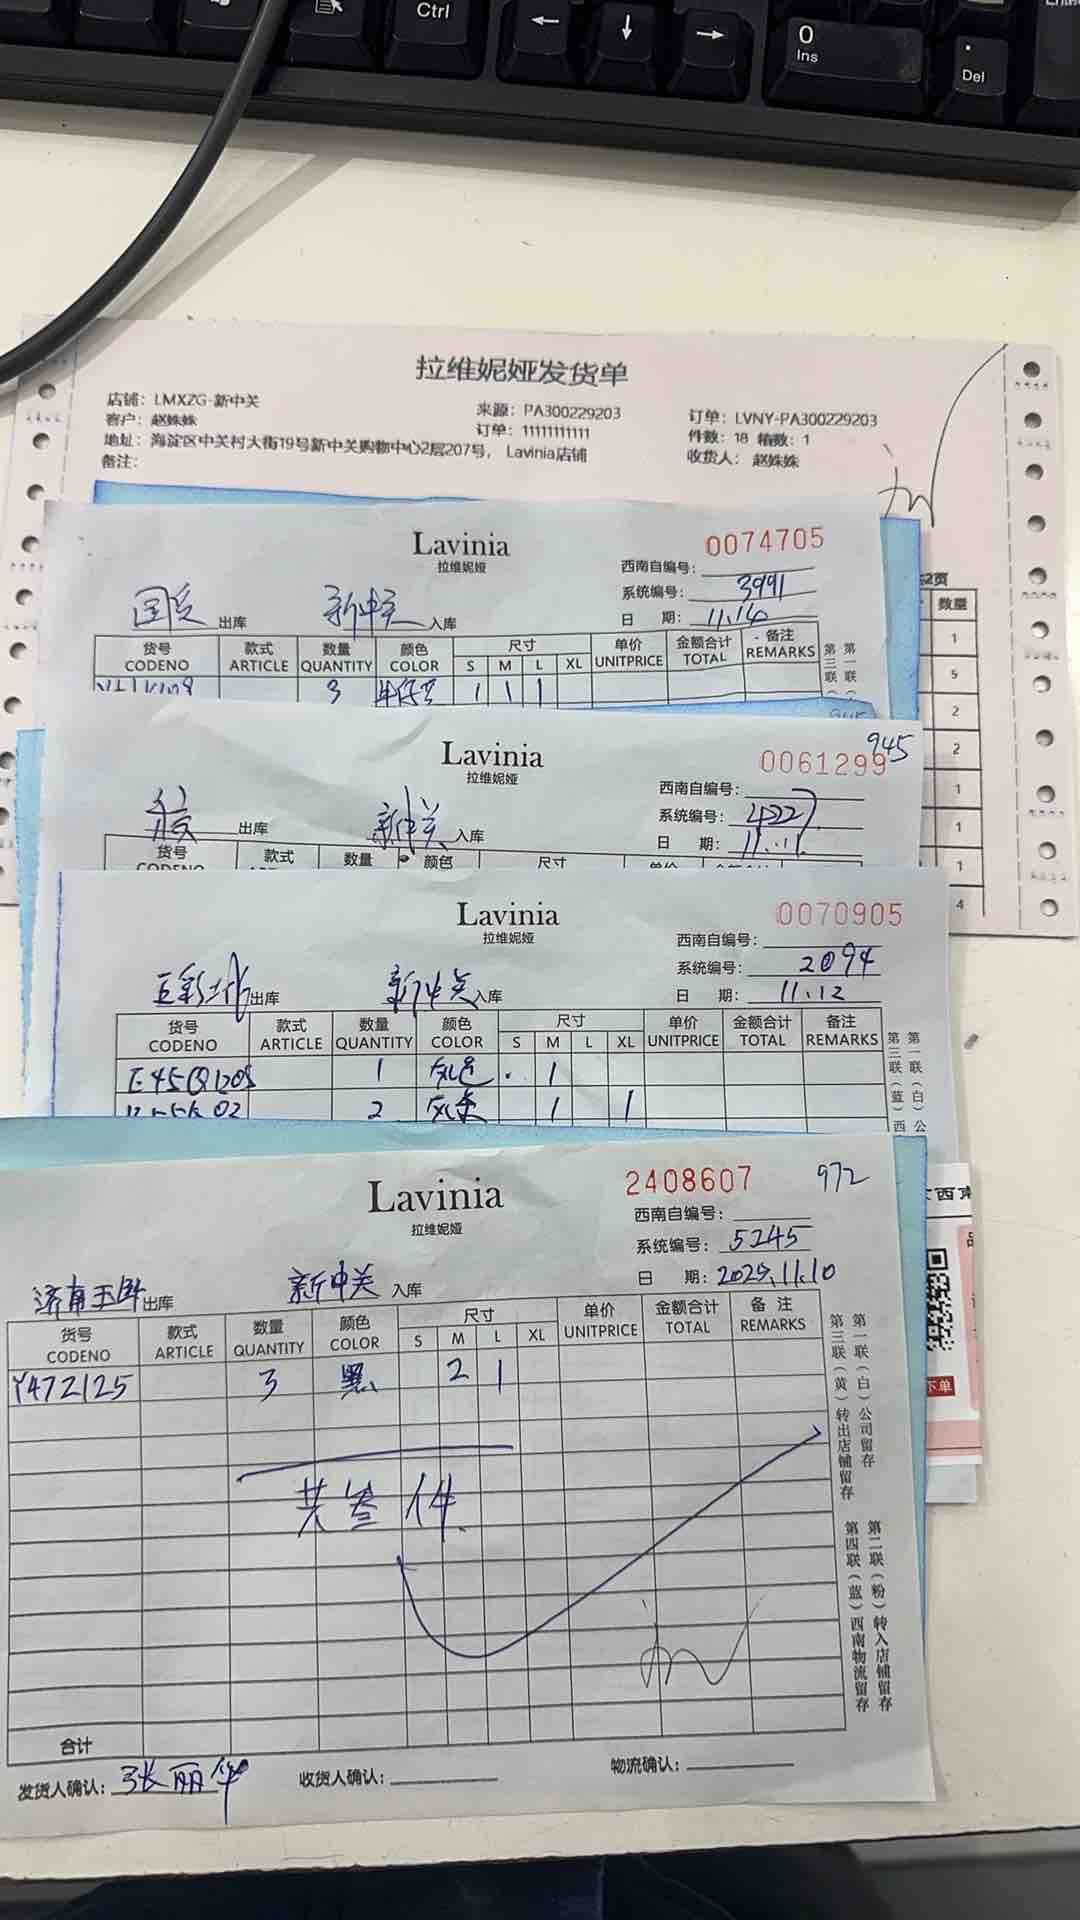 Ctrl
←
↓
→
0
Ins
.
Del
拉维妮娅发货单
店铺：LMXZG-新中关
来源：PA300229203
订单：LVNY-PA300229203
客户：赵姝姝
订单：11111111111
件数：18 箱数：1
地址：海淀区中关村大街19号新中关购物中心2层207号，Lavinia店铺
收货人：赵姝姝
备注：
2页
数量
1
5
2
2
1
1
1
4
Lavinia
拉维妮娅
0074705
西南自编号：
系统编号：3991
日 期：11.14
出库 新中关 入库
货号 款式 数量 颜色 尺寸 单价 金额合计 备注
CODENO ARTICLE QUANTITY COLOR S M L XL UNITPRICE TOTAL REMARKS
3 1 1 1
Lavinia
拉维妮娅
0061299
945
西南自编号：
系统编号：4227
日 期：11.11
出库 新中关 入库
货号 款式 数量 颜色 尺寸
Lavinia
拉维妮娅
0070905
西南自编号：
系统编号：2094
日 期：11.12
出库 新中关 入库
货号 款式 数量 颜色 尺寸 单价 金额合计 备注
CODENO ARTICLE QUANTITY COLOR S M L XL UNITPRICE TOTAL REMARKS
1 1
2 1 1
Lavinia
拉维妮娅
2408607
972
西南自编号：
系统编号：5245
日 期：2025.11.10
济南玉 出库 新中关 入库
货号 款式 数量 颜色 尺寸 单价 金额合计 备注
CODENO ARTICLE QUANTITY COLOR S M L XL UNITPRICE TOTAL REMARKS
Y472125 3 黑 2 1
共叁件
第一联（白）公司留存
第三联（黄）转出店铺留存
第二联（粉）转入店铺留存
第四联（蓝）西南物流留存
合计
发货人确认：张丽华
收货人确认：
物流确认：
下单